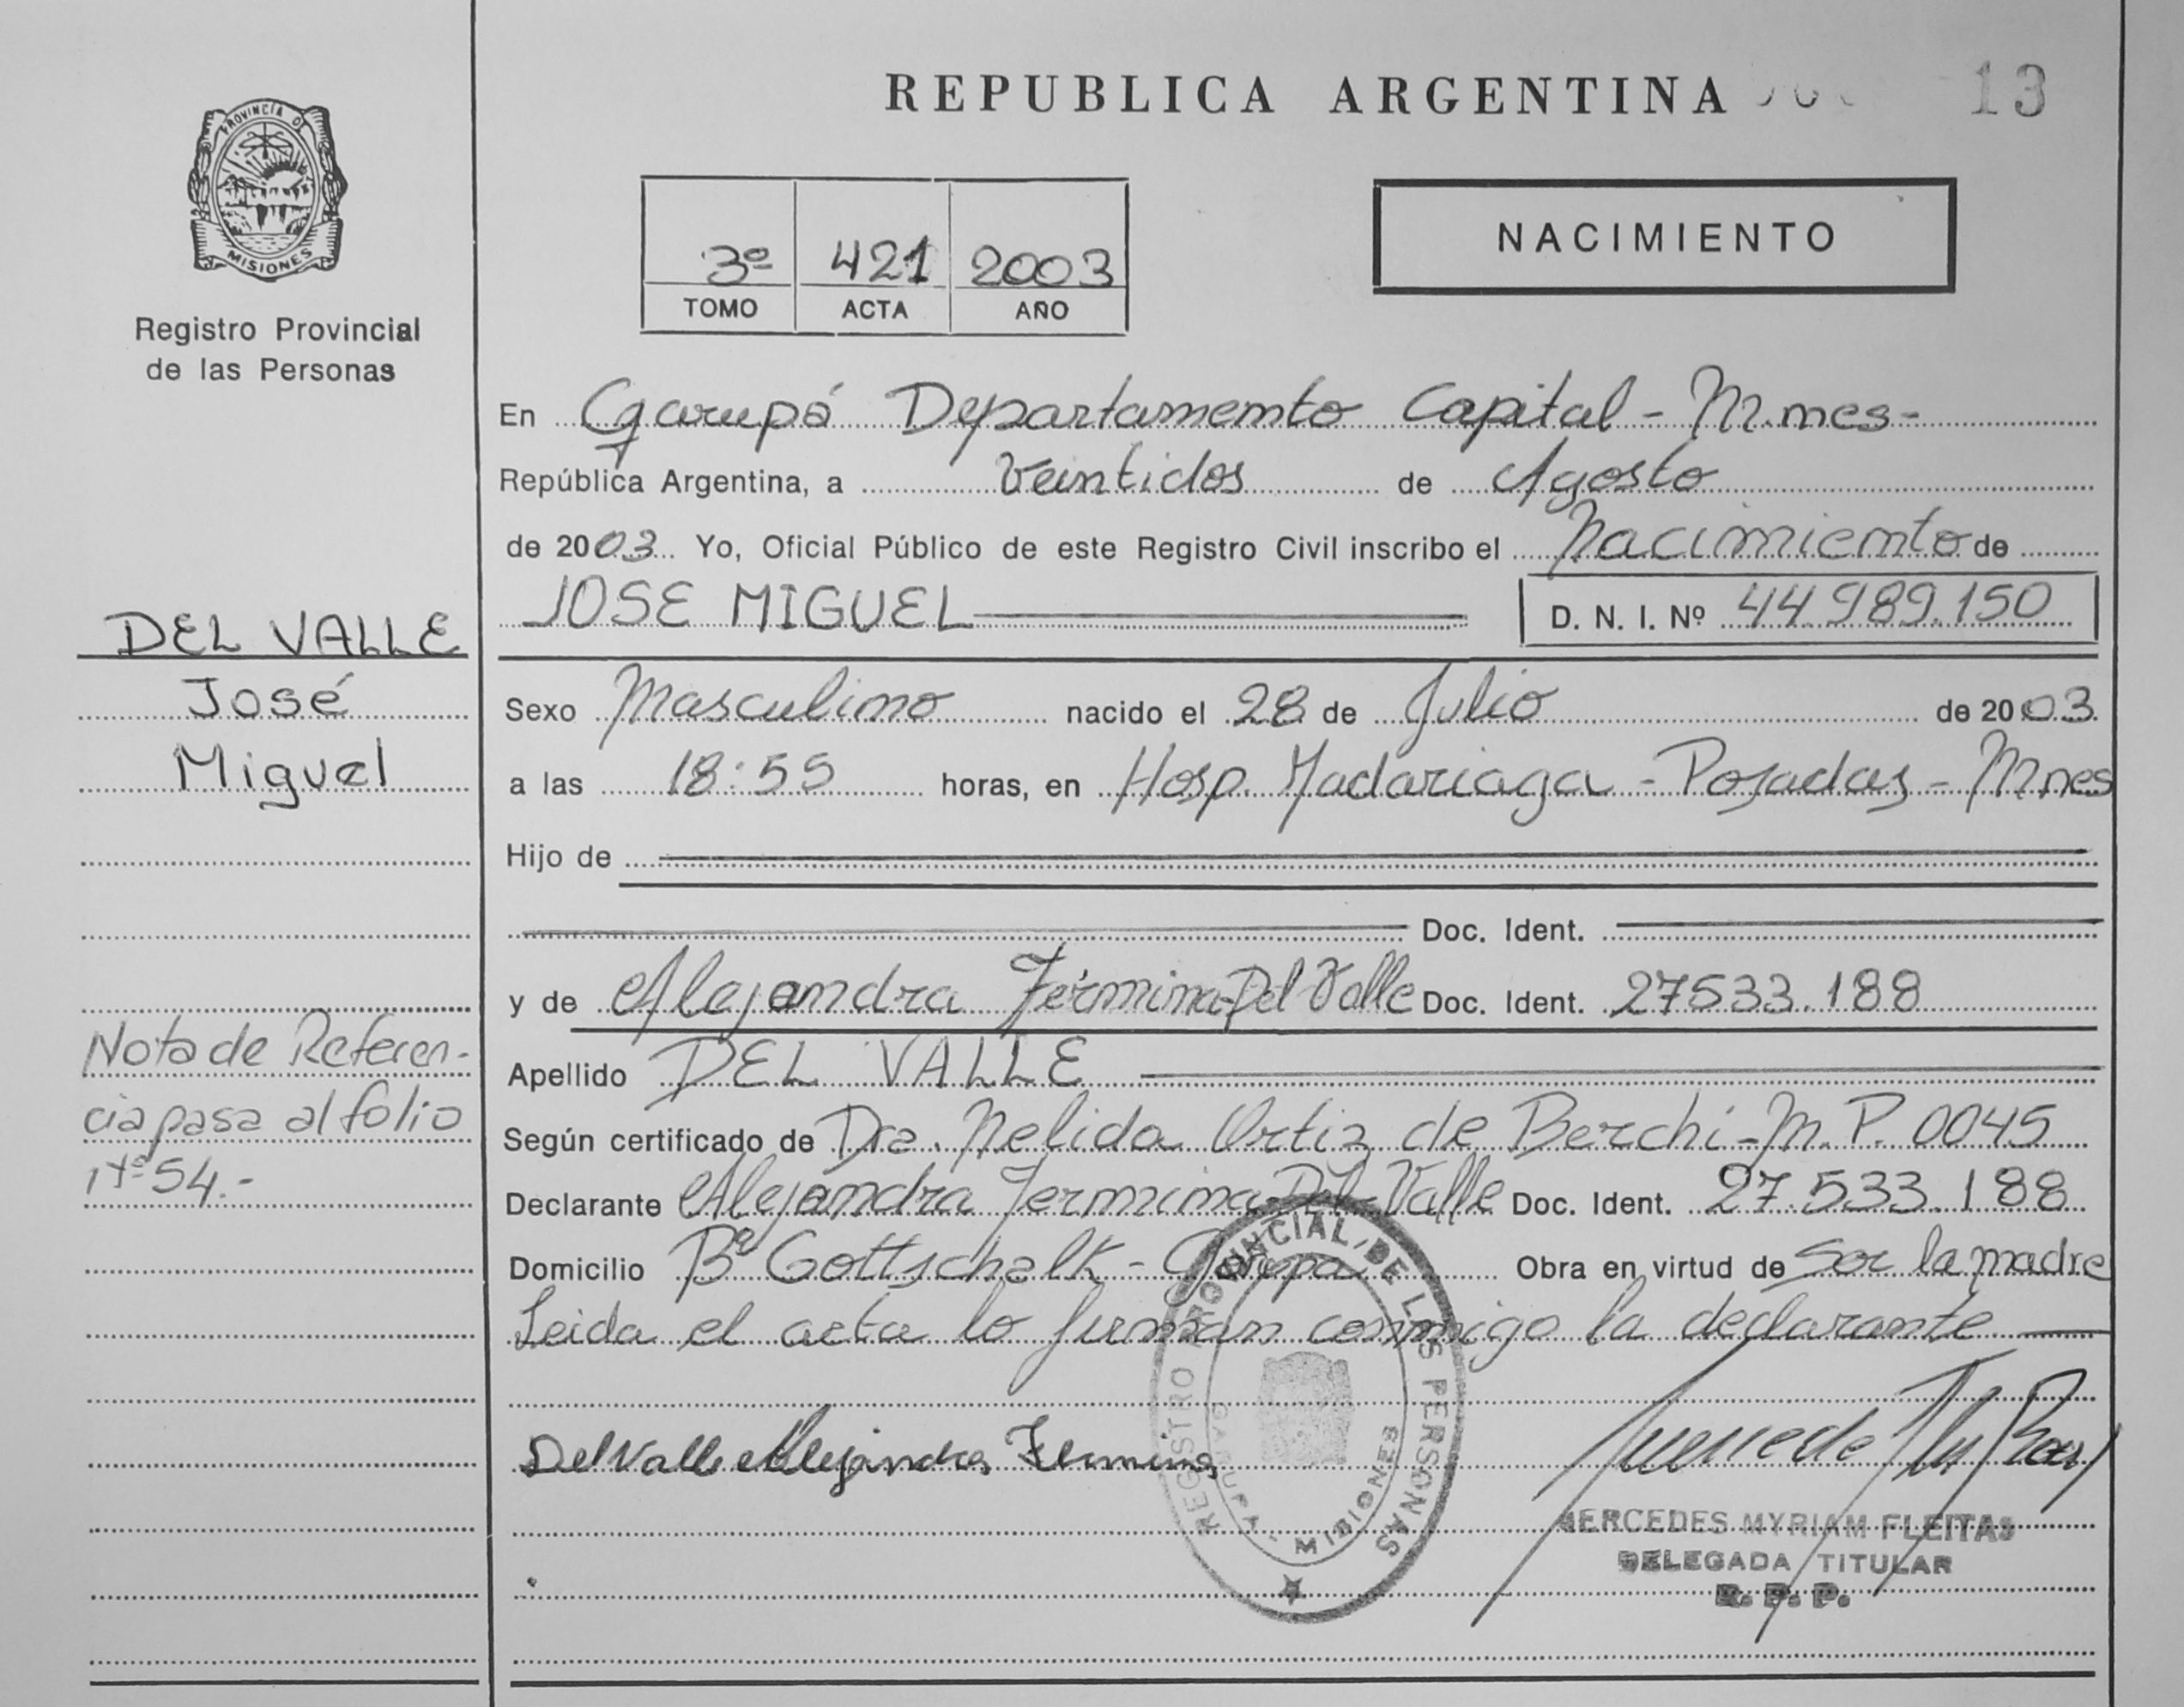 REPUBLICA ARGENTINA
13
PROVINCIA DE
MISIONES
Registro Provincial
de las Personas
3º 421 2003
TOMO ACTA AÑO
NACIMIENTO
En Garupá Departamento Capital - Mnes-
República Argentina, a Veintidos de Agosto
de 2003 Yo, Oficial Público de este Registro Civil inscribo el Nacimiento de
JOSE MIGUEL D. N. I. Nº 44.989.150
DEL VALLE
José
Miguel
Sexo Masculino nacido el 28 de Julio de 2003
a las 18:55 horas, en Hosp. Madariaga - Posadas - Mnes
Hijo de
Doc. Ident.
y de Alejandra Fermina Del Valle Doc. Ident. 27533.188
Apellido DEL VALLE
Según certificado de Dra. Nelida Ortiz de Berchi - M.P. 0045
Declarante Alejandra Fermina Del Valle Doc. Ident. 27.533.188
Domicilio Bº Gottschalk - Garupa Obra en virtud de Ser la madre
Leida el acta lo firman conmigo la declarante
Nota de Referen-
cia pasa al folio
Nº 54.-
Del Valle Alejandra Fermina
REGISTRO PROVINCIAL DE LAS PERSONAS
GARUPA - MISIONES
MERCEDES MYRIAM FLEITAS
DELEGADA TITULAR
R. P. P.